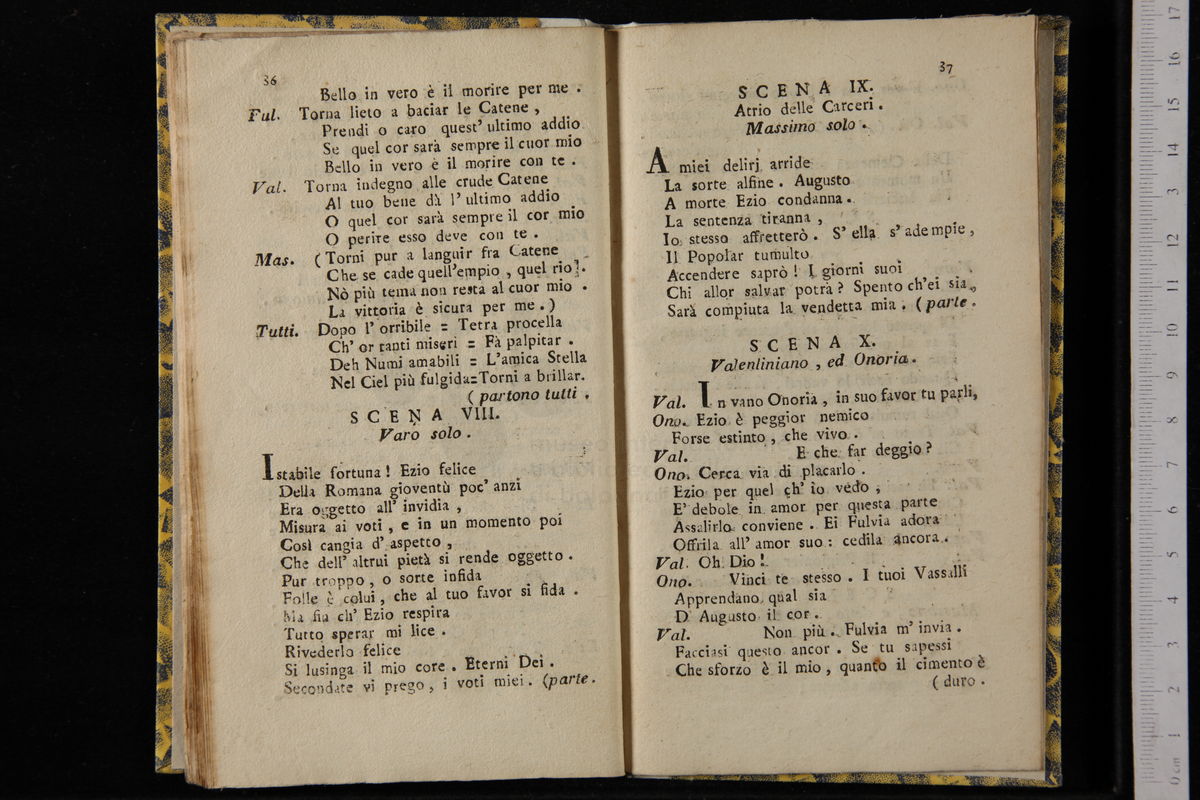 36
Bello in vero è il morire per me .
Ful. Torna lieto a baciar le Catene ,
Prendi o caro quest' ultimo addio
Se quel cor sarà sempre il cuor mio
Bello in vero è il morire con te .
Val. Torna indegno alle crude Catene
Al tuo bene dà l' ultimo addio
O quel cor sarà sempre il cor mio
O perire esso deve con te .
Mas. (Torni pur a languir fra Catene
Che se cade quell'empio , quel rio .
Nò più tema non resta al cuor mio .
La vittoria è sicura per me . )
Tutti. Dopo l' orribile = Tetra procella
Ch' or tanti miseri = Fà palpitar .
Deh Numi amabili = L'amica Stella
Nel Ciel più fulgida=Torni a brillar.
( partono tutti .
SCENA VIII.
Varo solo .
Istabile fortuna ! Ezio felice
Della Romana gioventù poc' anzi
Era oggetto all' invidia ,
Misura ai voti , e in un momento poi
Così cangia d' aspetto ,
Che dell' altrui pietà si rende oggetto .
Pur troppo , o sorte infida
Folle è colui , che al tuo favor si fida .
Ma fia ch' Ezio respira
Tutto sperar mi lice .
Rivederlo felice
Si lusinga il mio core . Eterni Dei .
Secondate vi prego , i voti miei . (parte.
37
SCENA IX.
Atrio delle Carceri .
Massimo solo .
A miei delirj arride
La sorte alfine . Augusto
A morte Ezio condanna .
La sentenza tiranna ,
Io stesso affretterò . S' ella s' adempie ,
Il Popolar tumulto
Accendere saprò ! I giorni suoi
Chi allor salvar potrà ? Spento ch'ei sia ,
Sarà compiuta la vendetta mia . (parte.
SCENA X.
Valentiniano , ed Onoria .
Val. In vano Onoria , in suo favor tu parli,
Ono. Ezio è peggior nemico
Forse estinto , che vivo .
Val. E che far deggio ?
Ono. Cerca via di placarlo .
Ezio per quel ch' io vedo ,
E' debole in amor per questa parte
Assalirlo conviene . Ei Fulvia adora
Offrila all' amor suo : cedila ancora .
Val. Oh Dio !
Ono. Vinci te stesso . I tuoi Vassalli
Apprendano qual sia
D' Augusto il cor .
Val. Non più . Fulvia m' invia .
Facciasi questo ancor . Se tu sapessi
Che sforzo è il mio , quanto il cimento è
( duro .
0 cm 1 2 3 4 5 6 7 8 9 10 11 12 13 14 15 16 17